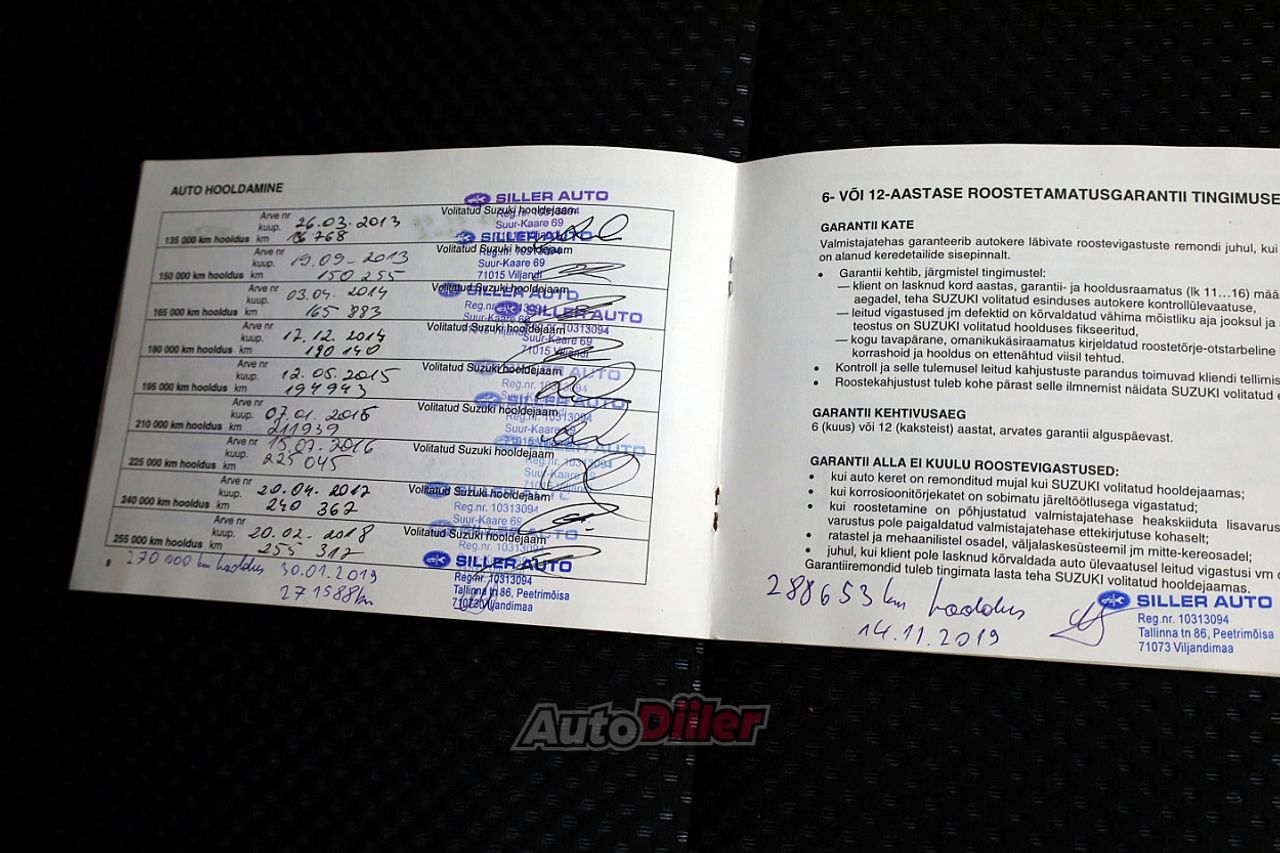 AUTO HOOLDAMINE
SILLER AUTO
Arve nr
kuup. 26.03.2013
Volitatud Suzuki hooldejaam
Reg.nr. 10313094
Suur-Kaare 69
135 000 km hooldus km
SILLER AUTO
Arve nr
kuup. 19.09-2013
Volitatud Suzuki hooldejaam
Suur-Kaare 69
150 000 km hooldus km 150 255
71015 Viljandi
Arve nr
kuup. 03.04.2014
Volitatud Suzuki hooldejaam
SILLER AUTO
165 000 km hooldus km 165 883
SILLER AUTO
Arve nr
kuup. 17.12.2014
Volitatud Suzuki hooldejaam
Reg.nr. 10313094
180 000 km hooldus km
71015 Viljandi
Arve nr
kuup. 12.05.2015
Volitatud Suzuki hooldejaam
SILLER AUTO
195 000 km hooldus km 194943
Reg.nr. 10313094
Arve nr
kuup. 07.01.2016
Volitatud Suzuki hooldejaam
SILLER AUTO
210 000 km hooldus km 211939
Reg.nr. 10313094
Arve nr
kuup. 15.07.2016
Volitatud Suzuki hooldejaam
SILLER AUTO
225 000 km hooldus km 225 045
Reg.nr. 10313094
Arve nr
kuup. 20.04.2017
Volitatud Suzuki hooldejaam
Reg.nr. 10313094
Suur-Kaare 69
240 000 km hooldus km 240 367
Arve nr
kuup. 20.02.2018
Volitatud Suzuki hooldejaam
SILLER AUTO
Reg.nr. 10313094
255 000 km hooldus km 255 317
8
270 000 km hooldus 30.01.2019
271588km
SILLER AUTO
Reg.nr. 10313094
Tallinna tn 86, Peetrimõisa
Viljandimaa
6- VÕI 12-AASTASE ROOSTETAMATUSGARANTII TINGIMUSE
GARANTII KATE
Valmistajatehas garanteerib autokere läbivate roostevigastuste remondi juhul, kui
on alanud keredetailide sisepinnalt.
• Garantii kehtib, järgmistel tingimustel:
— klient on lasknud kord aastas, garantii- ja hooldusraamatus (lk 11…16) mää
aegadel, teha SUZUKI volitatud esinduses autokere kontrollülevaatuse,
— leitud vigastused jm defektid on kõrvaldatud vähima mõistliku aja jooksul ja
teostus on SUZUKI volitatud hoolduses fikseeritud,
— kogu tavapärane, omanikukäsiraamatus kirjeldatud roostetõrje-otstarbeline
korrashoid ja hooldus on ettenähtud viisil tehtud.
• Kontroll ja selle tulemusel leitud kahjustuste parandus toimuvad kliendi tellimis
• Roostekahjustust tuleb kohe pärast selle ilmnemist näidata SUZUKI volitatud e
GARANTII KEHTIVUSAEG
6 (kuus) või 12 (kaksteist) aastat, arvates garantii alguspäevast.
GARANTII ALLA EI KUULU ROOSTEVIGASTUSED:
• kui auto keret on remonditud mujal kui SUZUKI volitatud hooldejaamas;
• kui korrosioonitõrjekatet on sobimatu järeltöötlusega vigastatud;
• kui roostetamine on põhjustatud valmistajatehase heakskiiduta lisavarus
varustus pole paigaldatud valmistajatehase ettekirjutuse kohaselt;
• ratastel ja mehaanilistel osadel, väljalaskesüsteemil jm mitte-kereosadel;
• juhul, kui klient pole lasknud kõrvaldada auto ülevaatusel leitud vigastusi vm d
Garantiiremondid tuleb tingimata lasta teha SUZUKI volitatud hooldejaamas.
288653 km hooldus
14.11.2019
SILLER AUTO
Reg.nr. 10313094
Tallinna tn 86, Peetrimõisa
71073 Viljandimaa
AutoDiiler